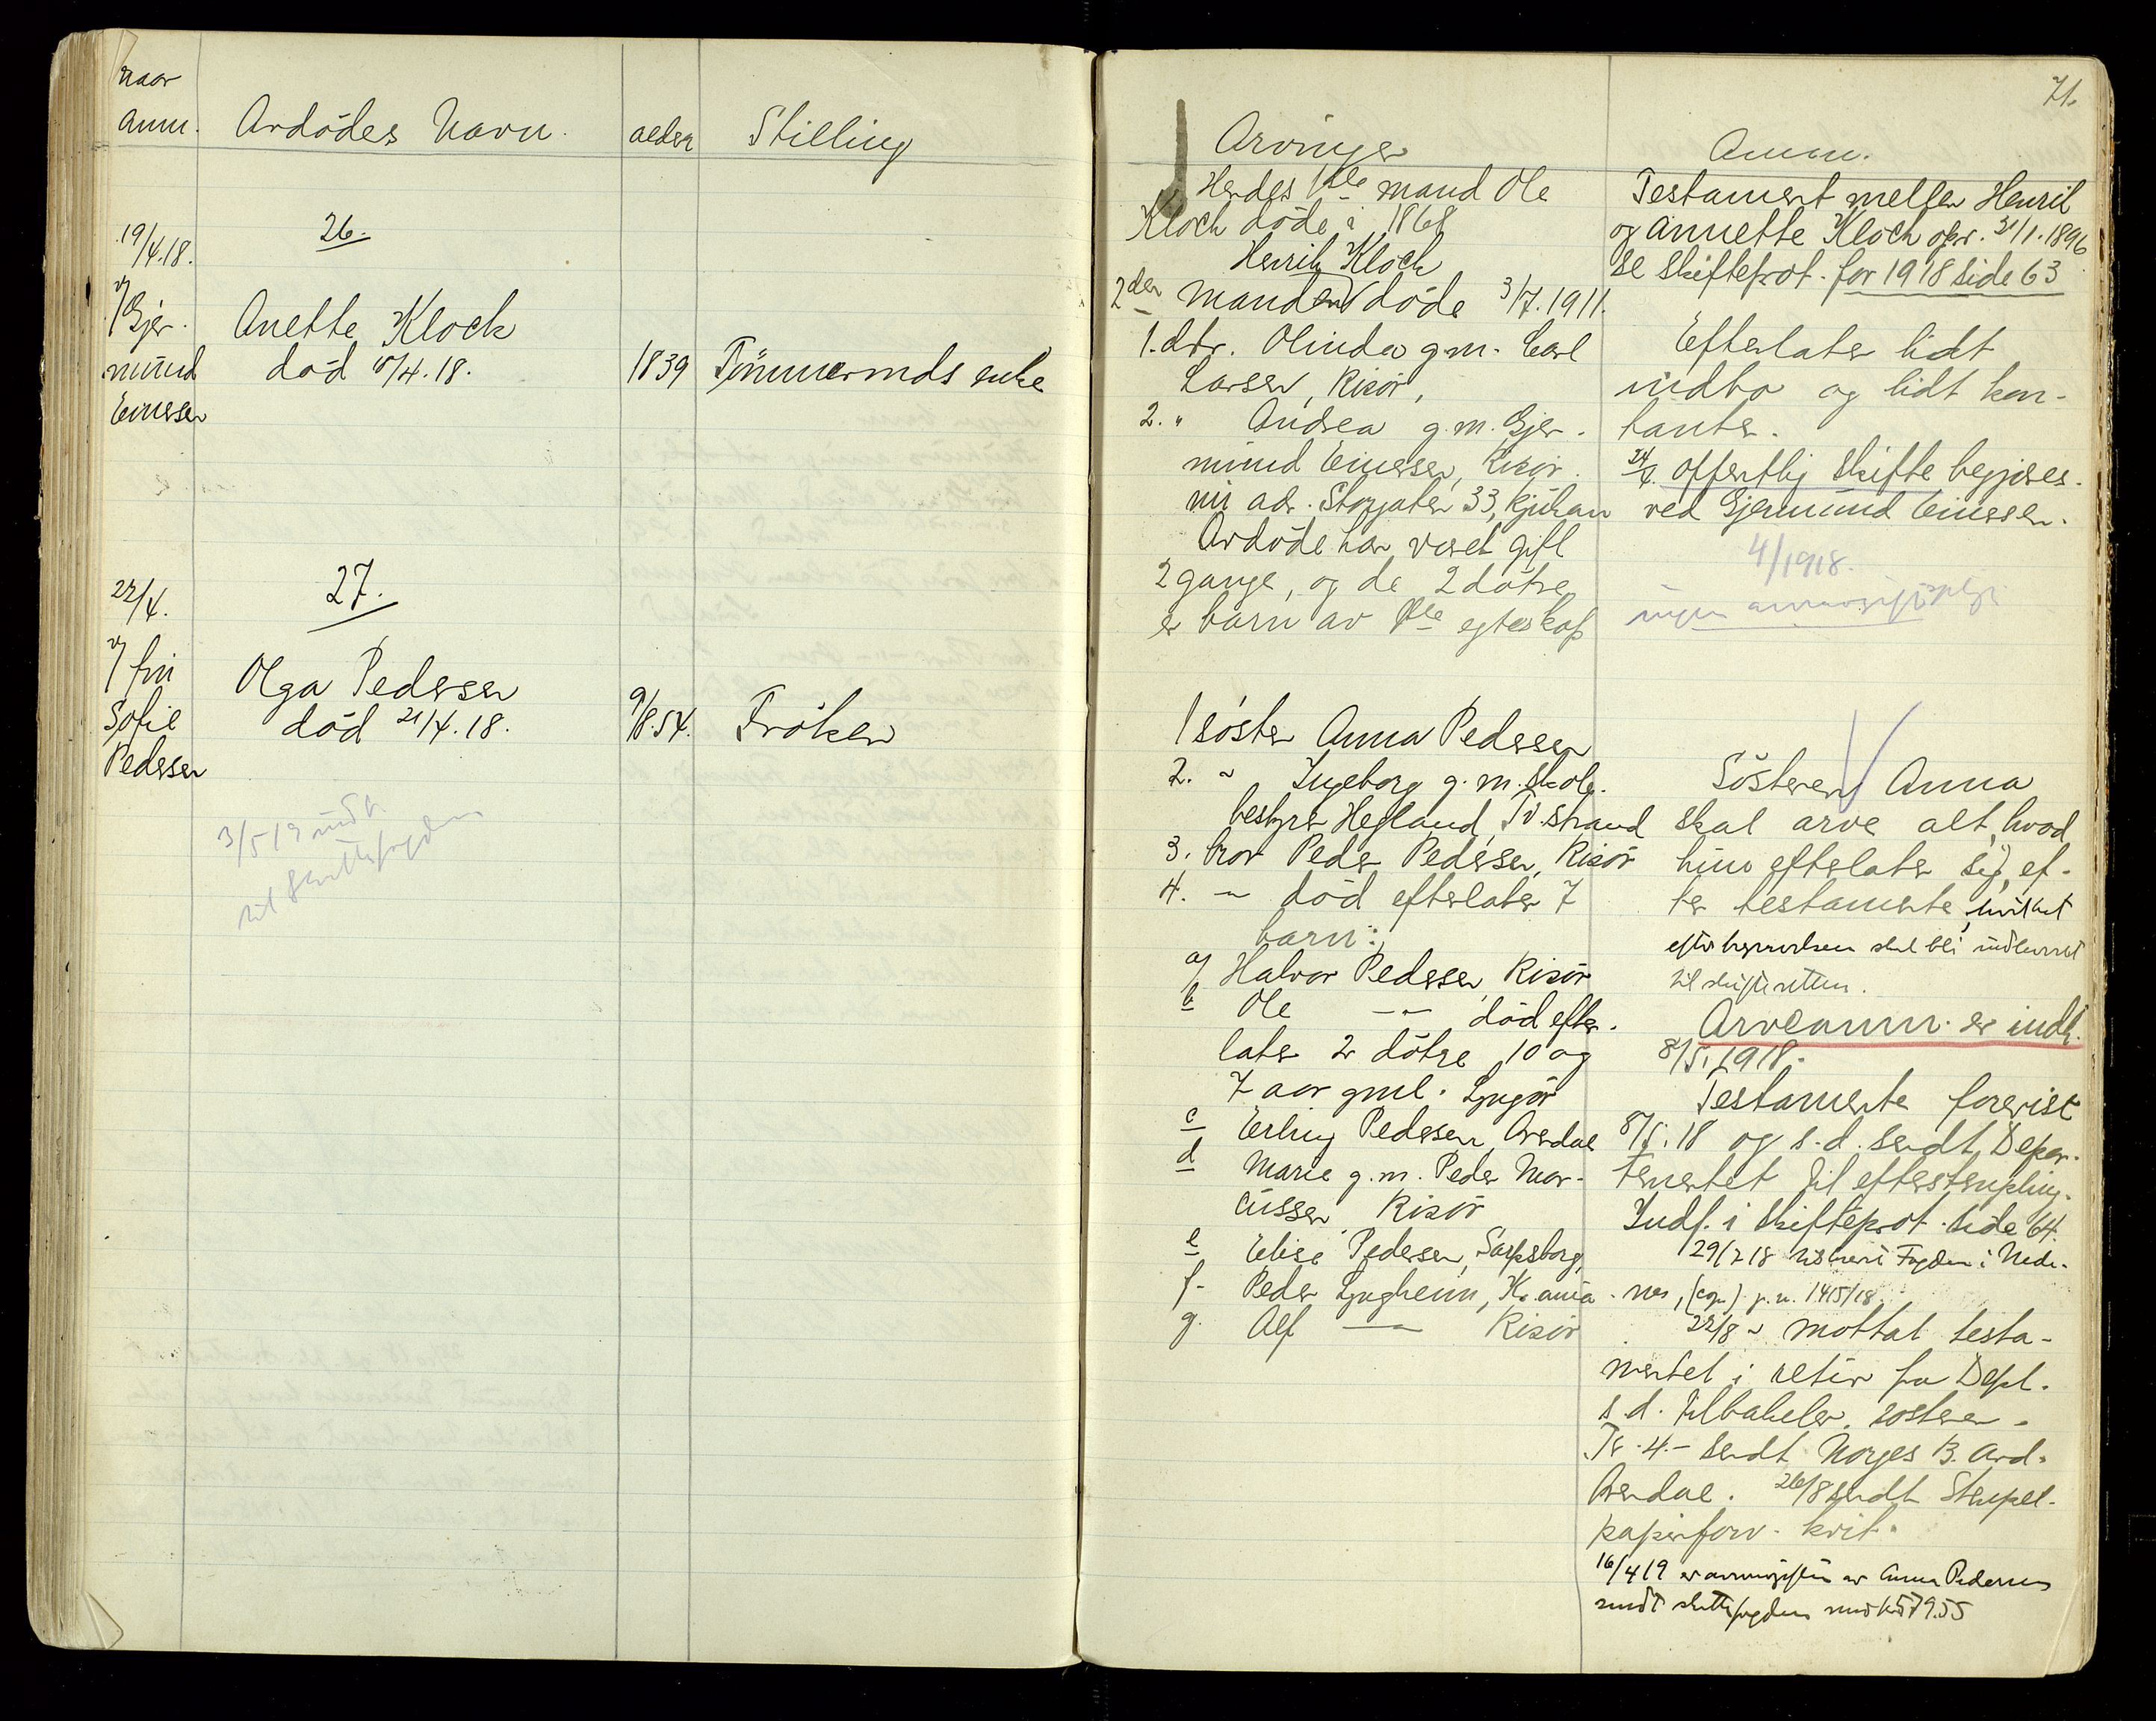 naar
anm.
Avdödes Navn.
alder
Stilling
19/4.18.
v/ Gjer-
mund
Einersen
26.
Anette Klock
död 15/4.18.
1839
Tömmermds enke
22/4.
v/ frk
Sofie
Pedersen
27.
Olga Pedersen
död 21/4.18.
9/8.54.
Fröken
3/5 19 sendt
til skattefogden
71.
Arvinger
Hendes 1ste mand Ole
Klock döde i 1868
Henrik Klock
2den manden döde 3/7.1911.
1. dtr. Olinda g.m. Carl
Larsen, Risör,
2. " Andrea g.m. Gjer-
mund Einersen, Risör.
nu adr. Storgaten 33, Rjukan
Avdöde har været gift
2 gange, og de 2 døtre
er barn av 1ste egteskap
1 söster Anna Pedersen
2. " Ingeborg g.m. skole-
bestyrer Hegland, Tv.strand
3. bror Peder Pedersen, Risör
4. — död efterlater 7
barn:
a/ Halvor Pedersen, Risör
b Ole —"— död efter-
later 2 døtre 10 og
7 aar gml. Lyngör
c Erling Pedersen, Arendal
d Marie g.m. Peder Mar-
cussen Risör
e Elise Pedersen, Sarpsborg,
f- Peder Lyngheim, Kr.ania
g. Alf —"— Risör
Anm.
Testament mellem Henrik
og Annette Klock opr. 31/1.1896
se skifteprot. for 1918 side 63
Efterlater lidt
indbo og lidt kon-
tanter.
24/4. offentlig skifte begjæres
ved Gjermund Einersen.
4/1918.
ingen arveavgiftspligt
Søsteren Anna
skal arve alt, hvad
hun efterlater sig, ef-
ter testamente, hvilket
efter begravelsen skal bli indleveret
til skifteretten.
Arveanm. er indk.
8/5. 1918.
Testamente forevist
8/5.18 og s.d. sendt Depar-
tementet til efterstempling.
Indf. i skifteprot. side 64.
29/7 18 tilskrevet Fogden i Nede-
nes, (cop.) j.n. 1415/18.
22/8 " mottat testa-
mentet i retur fra Dept.
s.d. tilbakelev. søsteren.
Kr. 4.- sendt Norges B. Avd.
Arendal. 26/8 sendt Stempel-
papirforv. kvit.
16/4 19 er arveavgiften av Anna Pedersen
sendt skattefogden med kr 579.55